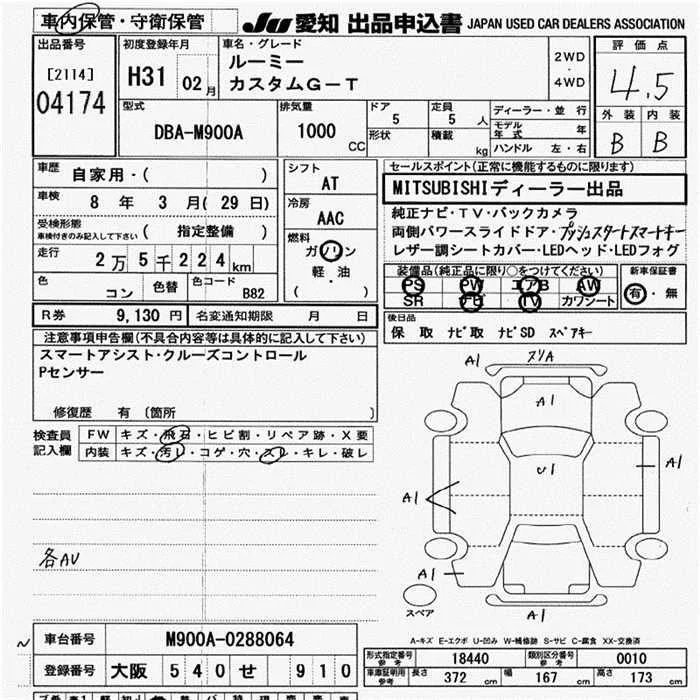 車内保管・守衛保管
JU 愛知 出品申込書 JAPAN USED CAR DEALERS ASSOCIATION
出品番号
[2114]
04174
初度登録年月
H31 02月
車名・グレード
ルーミー
カスタムG-T
2WD
・
4WD
評価点
4.5
外装 内装
B B
型式
DBA-M900A
排気量
1000
CC
ドア
5
形状
定員
5 人
積載
kg
ディーラー・並行
モデル年式 年
ハンドル 左・右
車歴 自家用・( )
車検 8 年 3 月( 29 日)
受検形態
車検付きのみ記入して下さい ( 指定整備 )
走行 2万5千224km
色 コン 色替 色コード B82
シフト
AT
冷房
AAC
燃料
ガソリン
軽・油
( )
セールスポイント(正常に機能するものに限ります)
MITSUBISHIディーラー出品
純正ナビ・TV・バックカメラ
両側パワースライドドア・プッシュスタートスマートキー
レザー調シートカバー・LEDヘッド・LEDフォグ
装備品(純正品に限り○をつけてください)
PS PW エアB AW
SR ナビ TV カワシート
新車保証書
有・無
R券 9,130 円 名変通知期限 月 日
後日品
保 取 ナビ取 ナビSD スペアキー
注意事項申告欄(不具合内容等は具体的に記入して下さい)
スマートアシスト・クルーズコントロール
Pセンサー
修復歴 有 〔箇所 〕
検査員記入欄
FW キズ・飛石・ヒビ割・リペア跡・X要
内装 キズ・汚レ・コゲ・穴・スレ・キレ・破レ
各AV
A1 スリA
A1
U1
A1
A1
A1
A1
スペア
A-キズ E-エクボ U-凹み W-補修跡 S-サビ C-腐食 XX-交換済
車台番号 M900A-0288064
登録番号 大阪 540 せ 910
型式指定番号
参考 18440
類別区分番号
参考 0010
車庫証明用
参考 長さ 372 cm 幅 167 cm 高さ 173 cm